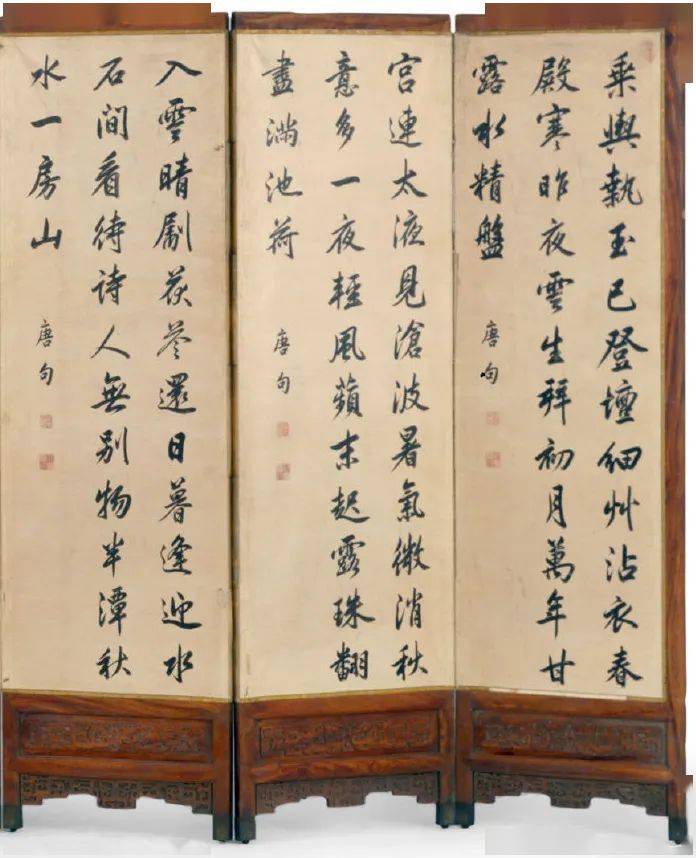 乘輿執玉已登壇細艸沾衣春
殿寒昨夜雲生拜初月萬年甘
露水精盤
唐句
宮連太液見滄波暑氣微消秋
意多一夜輕風蘋末起露珠翻
盡滿池荷
唐句
入雲晴劚茯苓還日暮逢迎木
石間看待詩人無別物半潭秋
水一房山
唐句